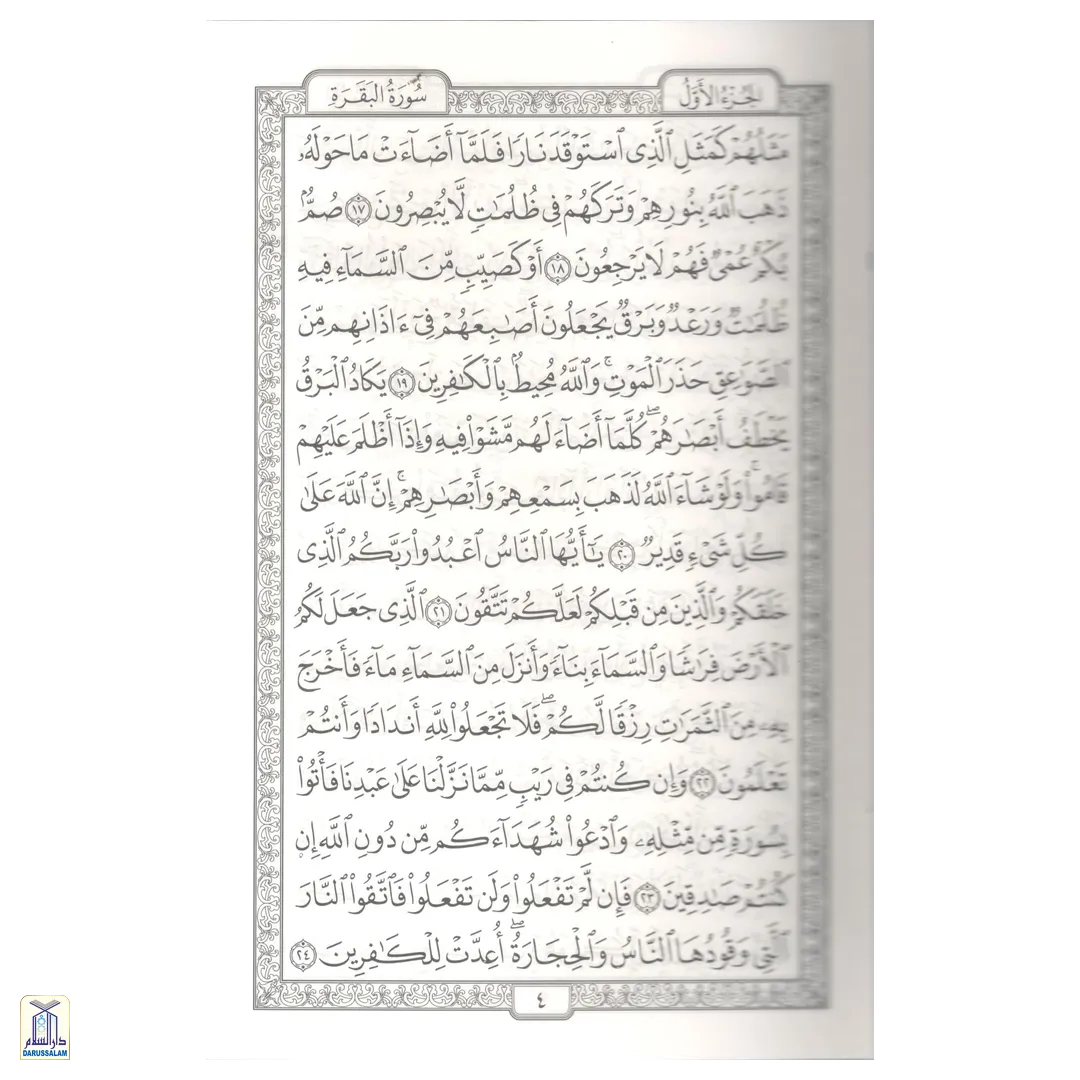 الجزء الأول
سورة البقرة
مَثَلُهُمْ كَمَثَلِ ٱلَّذِى ٱسْتَوْقَدَ نَارًا فَلَمَّآ أَضَآءَتْ مَا حَوْلَهُۥ
ذَهَبَ ٱللَّهُ بِنُورِهِمْ وَتَرَكَهُمْ فِى ظُلُمَٰتٍ لَّا يُبْصِرُونَ ١٧ صُمٌّۢ
بُكْمٌ عُمْىٌ فَهُمْ لَا يَرْجِعُونَ ١٨ أَوْ كَصَيِّبٍ مِّنَ ٱلسَّمَآءِ فِيهِ
ظُلُمَٰتٌ وَرَعْدٌ وَبَرْقٌ يَجْعَلُونَ أَصَٰبِعَهُمْ فِىٓ ءَاذَانِهِم مِّنَ
ٱلصَّوَٰعِقِ حَذَرَ ٱلْمَوْتِ ۚ وَٱللَّهُ مُحِيطٌۢ بِٱلْكَٰفِرِينَ ١٩ يَكَادُ ٱلْبَرْقُ
يَخْطَفُ أَبْصَٰرَهُمْ ۖ كُلَّمَآ أَضَآءَ لَهُم مَّشَوْا۟ فِيهِ وَإِذَآ أَظْلَمَ عَلَيْهِمْ
قَامُوا۟ ۚ وَلَوْ شَآءَ ٱللَّهُ لَذَهَبَ بِسَمْعِهِمْ وَأَبْصَٰرِهِمْ ۚ إِنَّ ٱللَّهَ عَلَىٰ
كُلِّ شَىْءٍ قَدِيرٌ ٢٠ يَٰٓأَيُّهَا ٱلنَّاسُ ٱعْبُدُوا۟ رَبَّكُمُ ٱلَّذِى
خَلَقَكُمْ وَٱلَّذِينَ مِن قَبْلِكُمْ لَعَلَّكُمْ تَتَّقُونَ ٢١ ٱلَّذِى جَعَلَ لَكُمُ
ٱلْأَرْضَ فِرَٰشًا وَٱلسَّمَآءَ بِنَآءً وَأَنزَلَ مِنَ ٱلسَّمَآءِ مَآءً فَأَخْرَجَ
بِهِۦ مِنَ ٱلثَّمَرَٰتِ رِزْقًا لَّكُمْ ۖ فَلَا تَجْعَلُوا۟ لِلَّهِ أَندَادًا وَأَنتُمْ
تَعْلَمُونَ ٢٢ وَإِن كُنتُمْ فِى رَيْبٍ مِّمَّا نَزَّلْنَا عَلَىٰ عَبْدِنَا فَأْتُوا۟
بِسُورَةٍ مِّن مِّثْلِهِۦ وَٱدْعُوا۟ شُهَدَآءَكُم مِّن دُونِ ٱللَّهِ إِن
كُنتُمْ صَٰدِقِينَ ٢٣ فَإِن لَّمْ تَفْعَلُوا۟ وَلَن تَفْعَلُوا۟ فَٱتَّقُوا۟ ٱلنَّارَ
ٱلَّتِى وَقُودُهَا ٱلنَّاسُ وَٱلْحِجَارَةُ ۖ أُعِدَّتْ لِلْكَٰفِرِينَ ٢٤
٤
دار السلام
DARUSSALAM